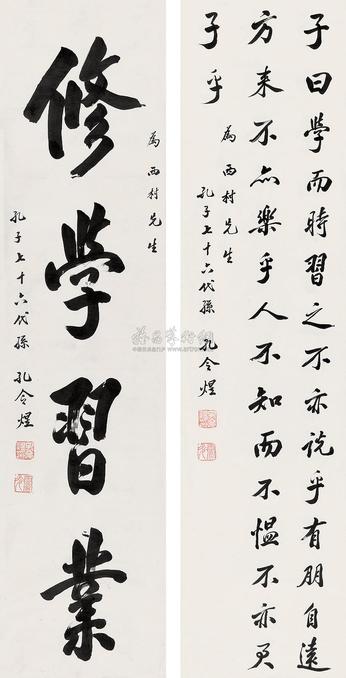 子曰學而時習之不亦説乎有朋自遠
方来不亦樂乎人不知而不愠不亦君
子乎
為西村先生
孔子七十六代孫 孔令煜
為西村先生
修學習業
孔子七十六代孫 孔令煜